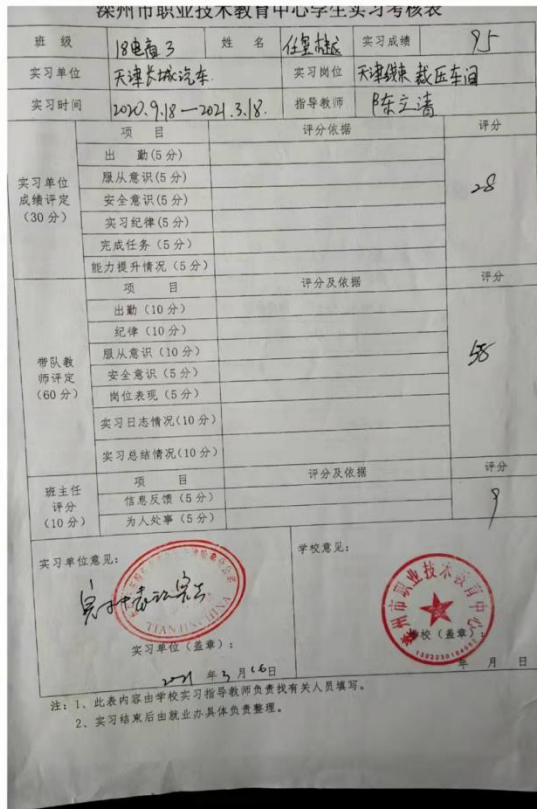 滦州市职业技术教育中心学生实习考核表
班 级 18电商3 姓 名 实习成绩 95
实习单位 天津长城汽车 实习岗位 天津线束裁压车间
实习时间 2020.9.18—2021.3.18. 指导教师 陈立清
项 目 评分依据 评分
实习单位成绩评定(30分) 28
出 勤(5分)
服从意识(5分)
安全意识(5分)
实习纪律(5分)
完成任务(5分)
能力提升情况(5分)
项 目 评分及依据 评分
带队教师评定(60分) 58
出勤(10分)
纪律(10分)
服从意识(10分)
安全意识(5分)
岗位表现(5分)
实习日志情况(10分)
实习总结情况(10分)
项 目 评分及依据 评分
班主任评分(10分) 9
信息反馈(5分)
为人处事(5分)
实习单位意见: 学校意见:
TIANJIN
州市职业技术教育中心
实习单位(盖章): 学校(盖章):
2021年3月16日 年 月 日
注:1、此表内容由学校实习指导教师负责找有关人员填写。
2、实习结束后由就业办具体负责整理。